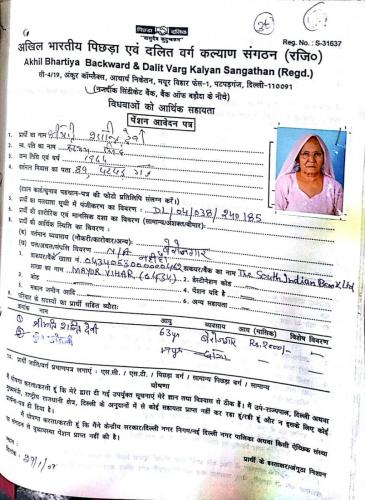 पिछड़ा दलित
"समतुल्य सुदृढ़करण"
Reg. No. : S-31637
अखिल भारतीय पिछड़ा एवं दलित वर्ग कल्याण संगठन (रजि०)
Akhil Bhartiya Backward & Dalit Varg Kalyan Sangathan (Regd.)
सी-4/19, अंकुर कॉम्लैक्स, आचार्य निकेतन, मयूर विहार फेस-1, पटपड़गंज, दिल्ली-110091
(नजदीक सिंडीकेट बैंक, बैंक ऑफ बड़ौदा के नीचे)
विधवाओं को आर्थिक सहायता
पेंशन आवेदन पत्र
१. प्रार्थी का नाम श्रीमती देवी
२. स्व. पति का नाम
३. जन्म तिथि एवं वर्ष 1944
४. वर्तमान निवास का पता 89,
(राशन कार्ड/चुनाव पहचान-पत्र की फोटो प्रतिलिपि संलग्न करें।)
५. प्रार्थी का मतदाता सूची में पंजीकरण का विवरण : DL/04/038/240185
६. प्रार्थी की शारीरिक एवं मानसिक दशा का विवरण (सामान्य/अशक्त/बीमार):
७. प्रार्थी की आर्थिक स्थिति का विवरण :
(क) वर्तमान व्यवसाय (नौकरी/कारोबार/अन्य): बेरोजगार
(ख) चल/अचल/संपत्ति विवरण N/A नहीं
१. बैंक/डाकघर खाता नं. 0434053000000462 डाकघर/बैंक का नाम The South Indian Bank Ltd
शाखा का नाम MAYUR VIHAR (0434) २. डेस्टीनेशन कोड
३. कोड ४. पेंशन यदि है
५. मकान जमीन आदि ६. अन्य सहायता
८. परिवार के सदस्यों का प्रार्थी सहित ब्यौरा:
क्रमांक नाम आयु व्यवसाय आय (मासिक) विशेष विवरण
① श्रीमति शान्ति देवी 63 yr बेरोजगार Rs. 2000/-
१०. प्रार्थी जाति/वर्ग प्रमाणपत्र लगाएं : एस.सी. / एस.टी. / पिछड़ा वर्ग / सामान्य पिछड़ा वर्ग / सामान्य
घोषणा
मैं घोषणा करता/करती हूं कि मेरे द्वारा दी गई उपर्युक्त सूचनाएं मेरे ज्ञान तथा विश्वास से ठीक हैं। मैं उप-राज्यपाल, दिल्ली अथवा
मुख्यमंत्री, राष्ट्रीय राजधानी क्षेत्र, दिल्ली के अनुदानों में से कोई सहायता प्राप्त नहीं कर रहा हूं/रही हूं और न इसके लिए कोई
प्रार्थना-पत्र ही दिया है।
मैं घोषणा करता/करती हूं कि मैंने केन्द्रीय सरकार/दिल्ली नगर निगम/नई दिल्ली नगर पालिका अथवा किसी ऐच्छिक संस्था
या संगठन से वृद्धावस्था पेंशन प्राप्त नहीं की है।
स्थान :
दिनांक :
प्रार्थी के हस्ताक्षर/अंगूठा निशान